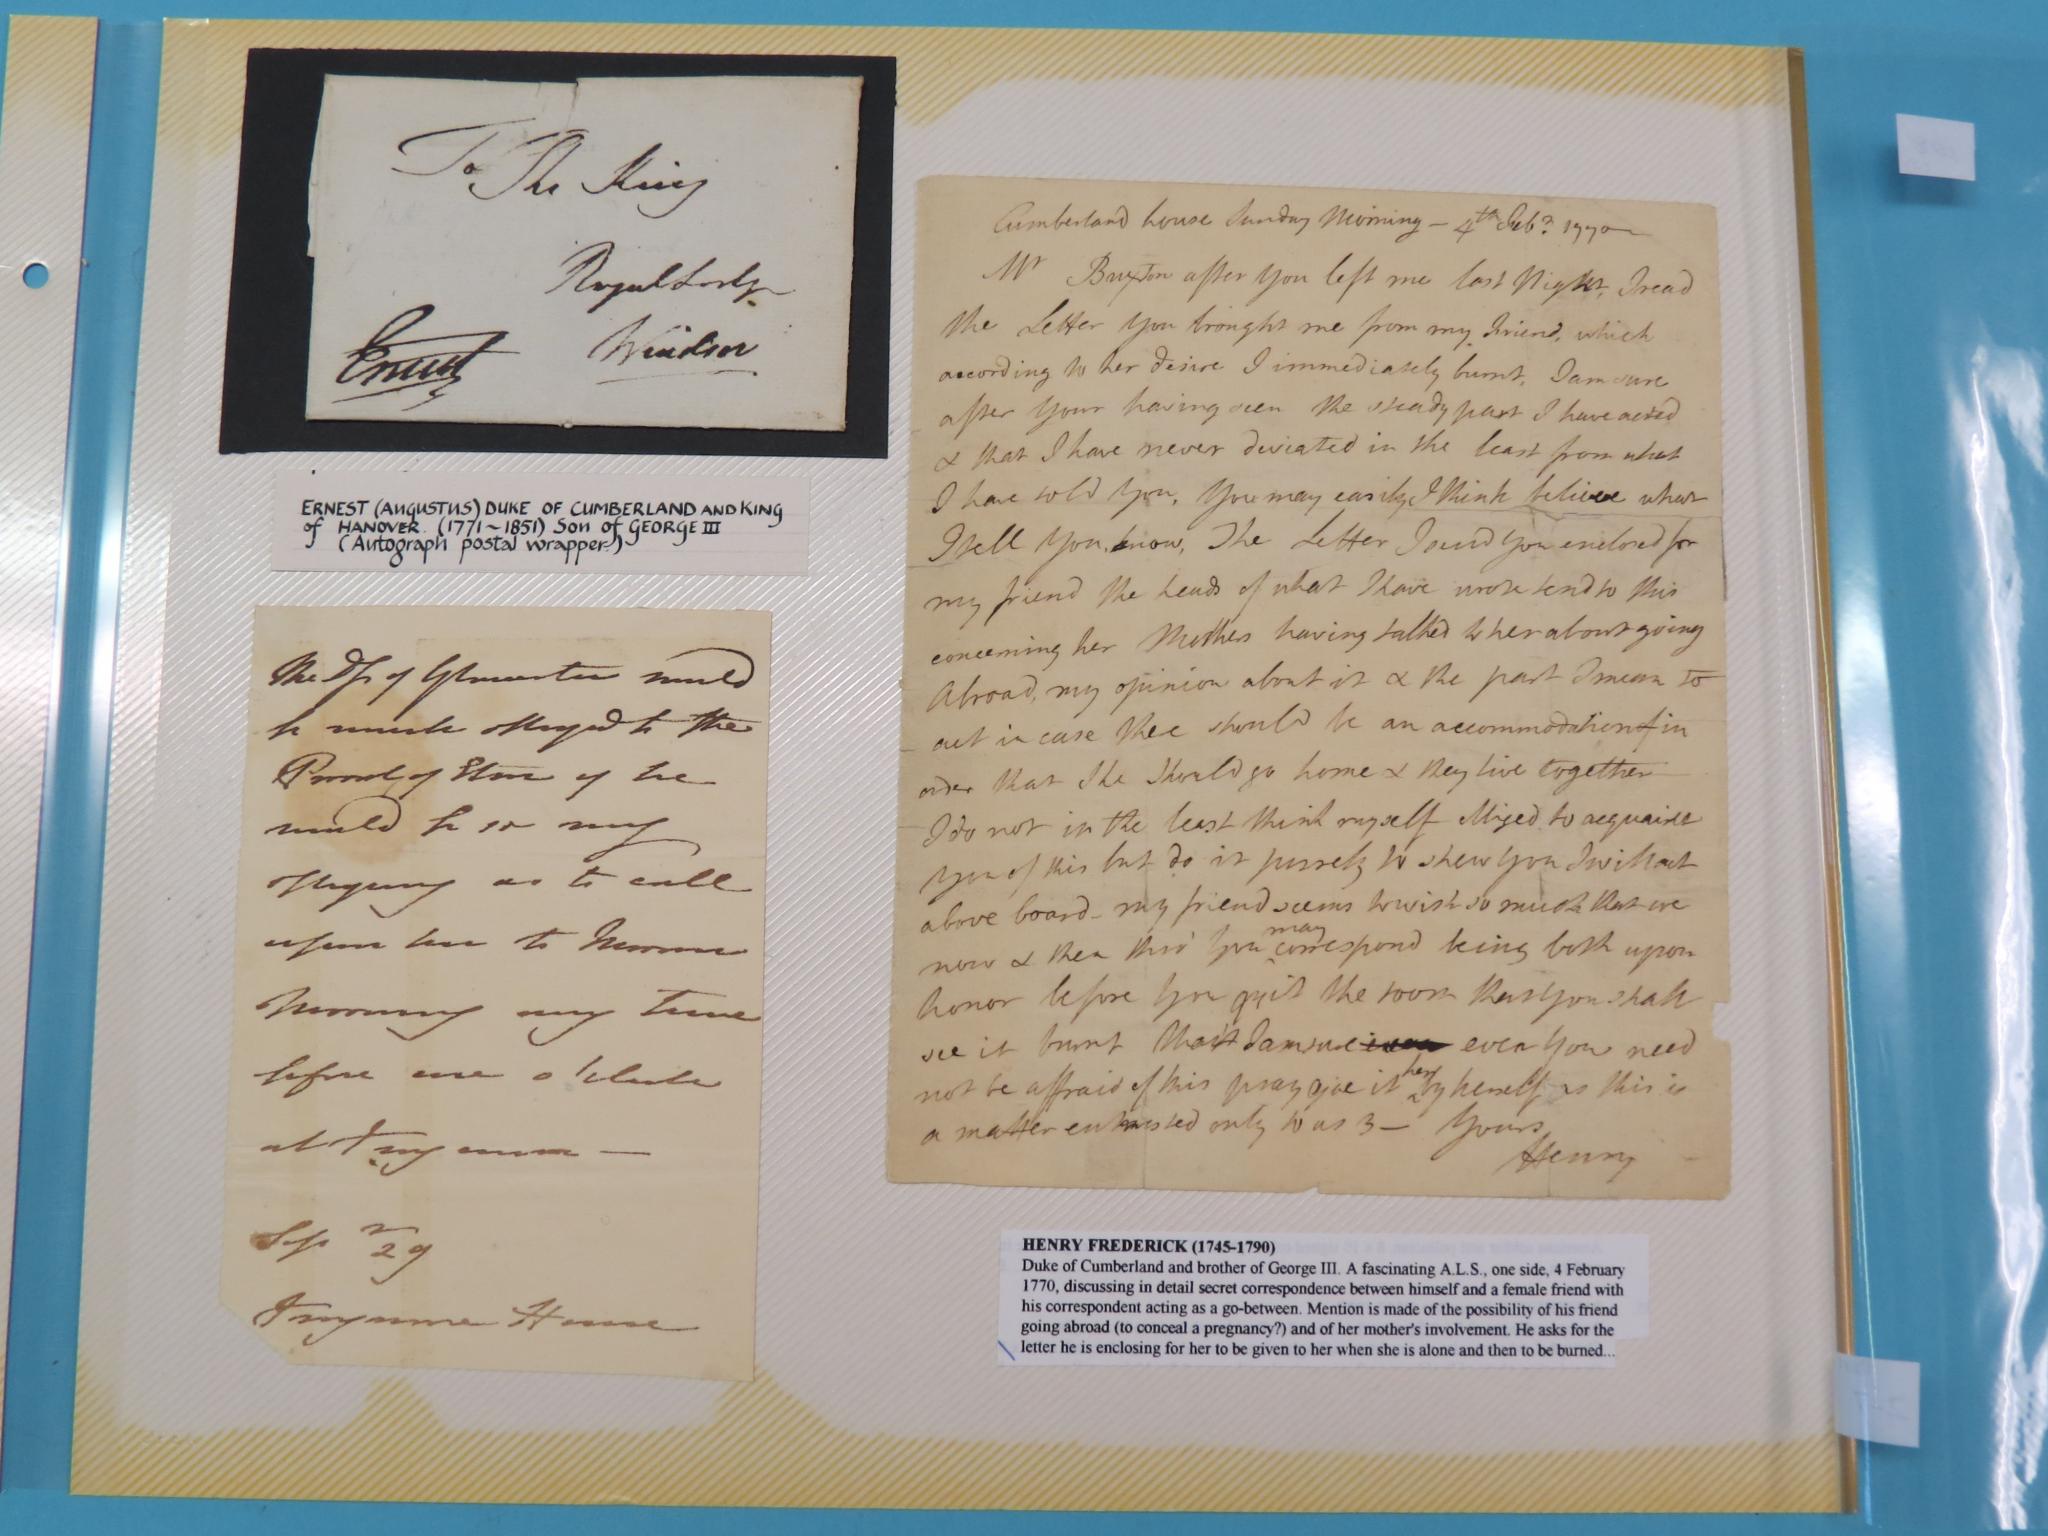 To The King
Royal Lodge
Windsor
Ernest
ERNEST (AUGUSTUS) DUKE OF CUMBERLAND AND KING
of HANOVER. (1771~1851) Son of GEORGE III
(Autograph postal wrapper.)
The Ds of Gloucester would
be much obliged to the
Provost of Eton if he
would be so very
obliging as to call
upon her to Morrow
Morning any time
before one o'Clock
at Frogmore —
Sep 29
Frogmore House
Cumberland house Sunday Morning – 4th Feb? 1770
Mr Buxton after You left me last Night, I read
the Letter You brought me from my Friend, which
according to her desire I immediately burnt, I am sure
after Your having seen the steady part I have acted
& that I have never deviated in the least from what
I have told You, You may easily I think believe what
I tell You know, The Letter I send You enclosed for
my friend the heads of what I have wrote tend to this
concerning her Mothers having talked to her about going
Abroad, my opinion about it & the part I mean to
act in case thee should be an accommodation of in
order that She should go home & they live together
I do not in the least think myself obliged to acquaint
You of this but do it purely to shew You I will act
above board – my friend seems to wish so much that we
now & then thro' You may correspond being both upon
honor before You quit the room that You shall
see it burnt that I am sure even You need
not be affraid of this pray give it her by herself as this is
a matter entrusted only to us 3 – Yours
Henry
HENRY FREDERICK (1745-1790)
Duke of Cumberland and brother of George III. A fascinating A.L.S., one side, 4 February
1770, discussing in detail secret correspondence between himself and a female friend with
his correspondent acting as a go-between. Mention is made of the possibility of his friend
going abroad (to conceal a pregnancy?) and of her mother's involvement. He asks for the
letter he is enclosing for her to be given to her when she is alone and then to be burned...